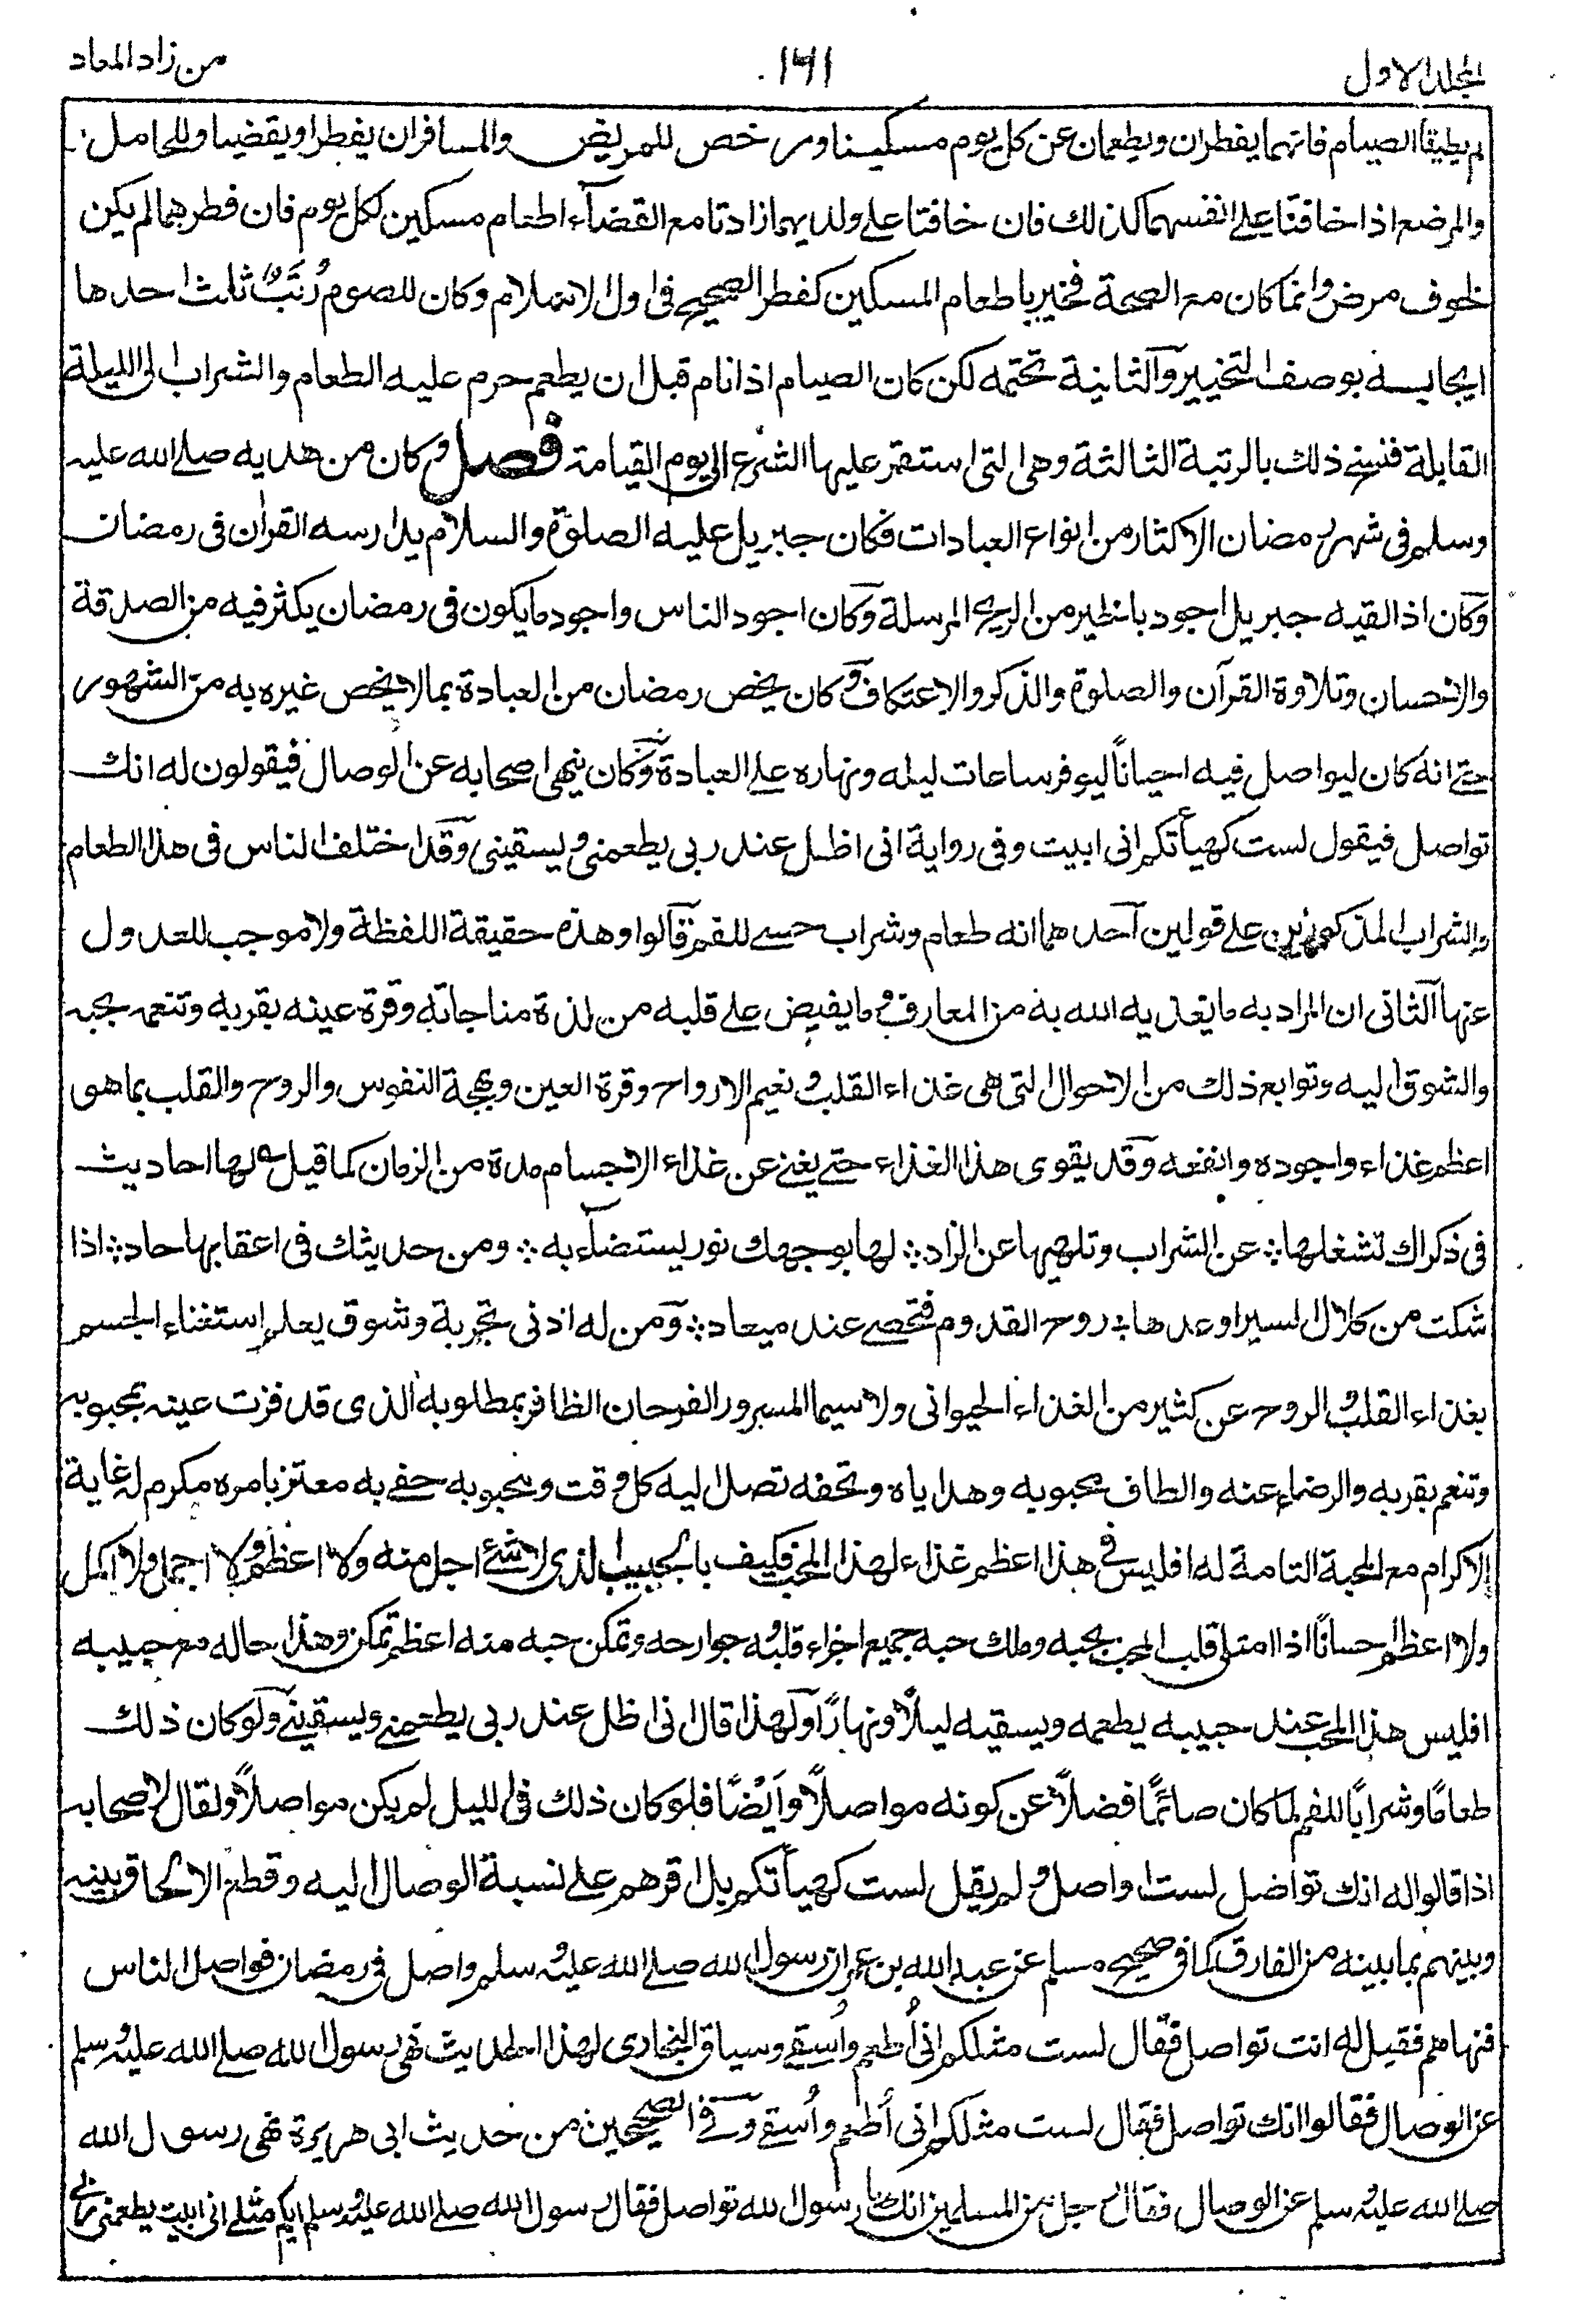 المجلد الاول ١٦١ من زاد المعاد
لم يطيقا الصيام فانهما يفطران ويطعمان عن كل يوم مسكينا ورخص للمريض والمسافر ان يفطرا ويقضيا وللحامل
والمرضع اذا خافتا على انفسهما كذلك فان خافتا على ولديهما زادتا مع القضآء اطعام مسكين لكل يوم فان فطرهما لم يكن
لخوف مرض وانما كان مع الصحة فخير باطعام المسكين كفطر الصحيح في اول الاسلام وكان للصوم رُتَبٌ ثلث احدها
ايجابه بوصف التخيير والثانية تحتمه لكن كان الصيام اذا نام قبل ان يطعم حرم عليه الطعام والشراب الى الليلة
القابلة فنسخ ذلك بالرتبة الثالثة وهى التى استقر عليها الشرع الى يوم القيامة فصل وكان من هديه صلے الله عليه
وسلم فى شهر رمضان الاكثار من انواع العبادات فكان جبريل عليه الصلوة والسلام يدارسه القرأن فى رمضان
وكان اذا لقيه جبريل اجود بالخير من الريح المرسلة وكان اجود الناس واجود ما يكون فى رمضان يكثر فيه من الصدقة
والاحسان وتلاوة القرآن والصلوة والذكر والاعتكاف وكان يخص رمضان من العبادة بما لا يخص غيره به من الشهور
حتے انه كان ليواصل فيه احياناً ليوفر ساعات ليله ونهاره علے العبادة وكان ينهى اصحابه عن الوصال فيقولون له انك
تواصل فيقول لست كهيأتكم انى ابيت وفى رواية انى اظل عند ربى يطعمنى ويسقينى وقد اختلف الناس فى هذا الطعام
والشراب المذكورين على قولين آحدهما انه طعام وشراب حسے للفم قالوا وهذه حقيقة اللفظة ولا موجب للعدول
عنها آلثانى ان المراد به ما يغذيه الله به من المعارف وما يفيض علے قلبه من لذة مناجاته وقرة عينه بقربه وتنعمه بحبه
والشوق اليه وتوابع ذلك من الاحوال التى هى غذاء القلب ونعيم الارواح وقرة العين وبهجة النفوس والروح والقلب بما هو
اعظم غذاء واجوده وانفعه وقد يقوى هذا الغذاء حتے يغنے عن غذاء الاجسام مدة من الزمان كما قيل ؎ لها احاديث
فى ذكراك تشغلها ؞ عن الشراب وتلهيها عن الزاد ؞ لها بوجهك نور يستضآء به ؞ ومن حديثك فى اعقابها حاد ؞ اذا
شكت من كلال السير اوعدها ؞ روح القدوم فتحيى عند ميعاد ؞ ومن له ادنى تجربة وشوق يعلم استغناء الجسم
بغذاء القلب والروح عن كثير من الغذاء الحيوانى ولا سيما المسرور الفرحان الظافر بمطلوبه الذى قد قرت عينه بمحبوبه
وتنعم بقربه والرضاء عنه والطاف محبوبه وهداياه وتحفه تصل اليه كل وقت ومحبوبه حفے به معتز بامره مكرم له غاية
الاكرام مع المحبة التامة له افليس فى هذا اعظم غذاء لهذا المحب فكيف بالحبيب الذى لا شئ اجل منه ولا اعظم ولا اجمل ولا اكمل
ولا اعظم احساناً اذا امتلى قلب المحب بحبه وملك حبه جميع اجزاء قلبه وجوارحه وتمكن حبه منه اعظم تمكن وهذا حاله مع حبيبه
افليس هذا المحب عند حبيبه يطعمه ويسقيه ليلاً ونهاراً ولهذا قال انى اظل عند ربى يطعمنے ويسقينے ولو كان ذلك
طعاماً وشراباً للفم لما كان صائماً فضلاً عن كونه مواصلاً وايضًا فلو كان ذلك فى الليل لم يكن مواصلاً ولقال لاصحابه
اذا قالوا له انك تواصل لست اواصل ولم يقل لست كهيأتكم بل اقرهم علے نسبة الوصال اليه وقطع الالحاق بينه
وبينهم بما بينه من الفارق كما فى صحيح مسلم عن عبد الله بن عمر ان رسول الله صلے الله عليه وسلم واصل فى رمضان فواصل الناس
فنهاهم فقيل له انت تواصل فقال لست مثلكم انى اُطعم واُسقے وسياق البخارى لهذا الحديث نهى رسول الله صلے الله عليه وسلم
عن الوصال فقالوا انك تواصل فقال لست مثلكم انى اُطعم واُسقے وفے الصحيحين من حديث ابى هريرة نهى رسول الله
صلے الله عليه وسلم عن الوصال فقال رجل من المسلمين انك يا رسول الله تواصل فقال رسول الله صلے الله عليه وسلم ايكم مثلے انى ابيت يطعمنى ربى